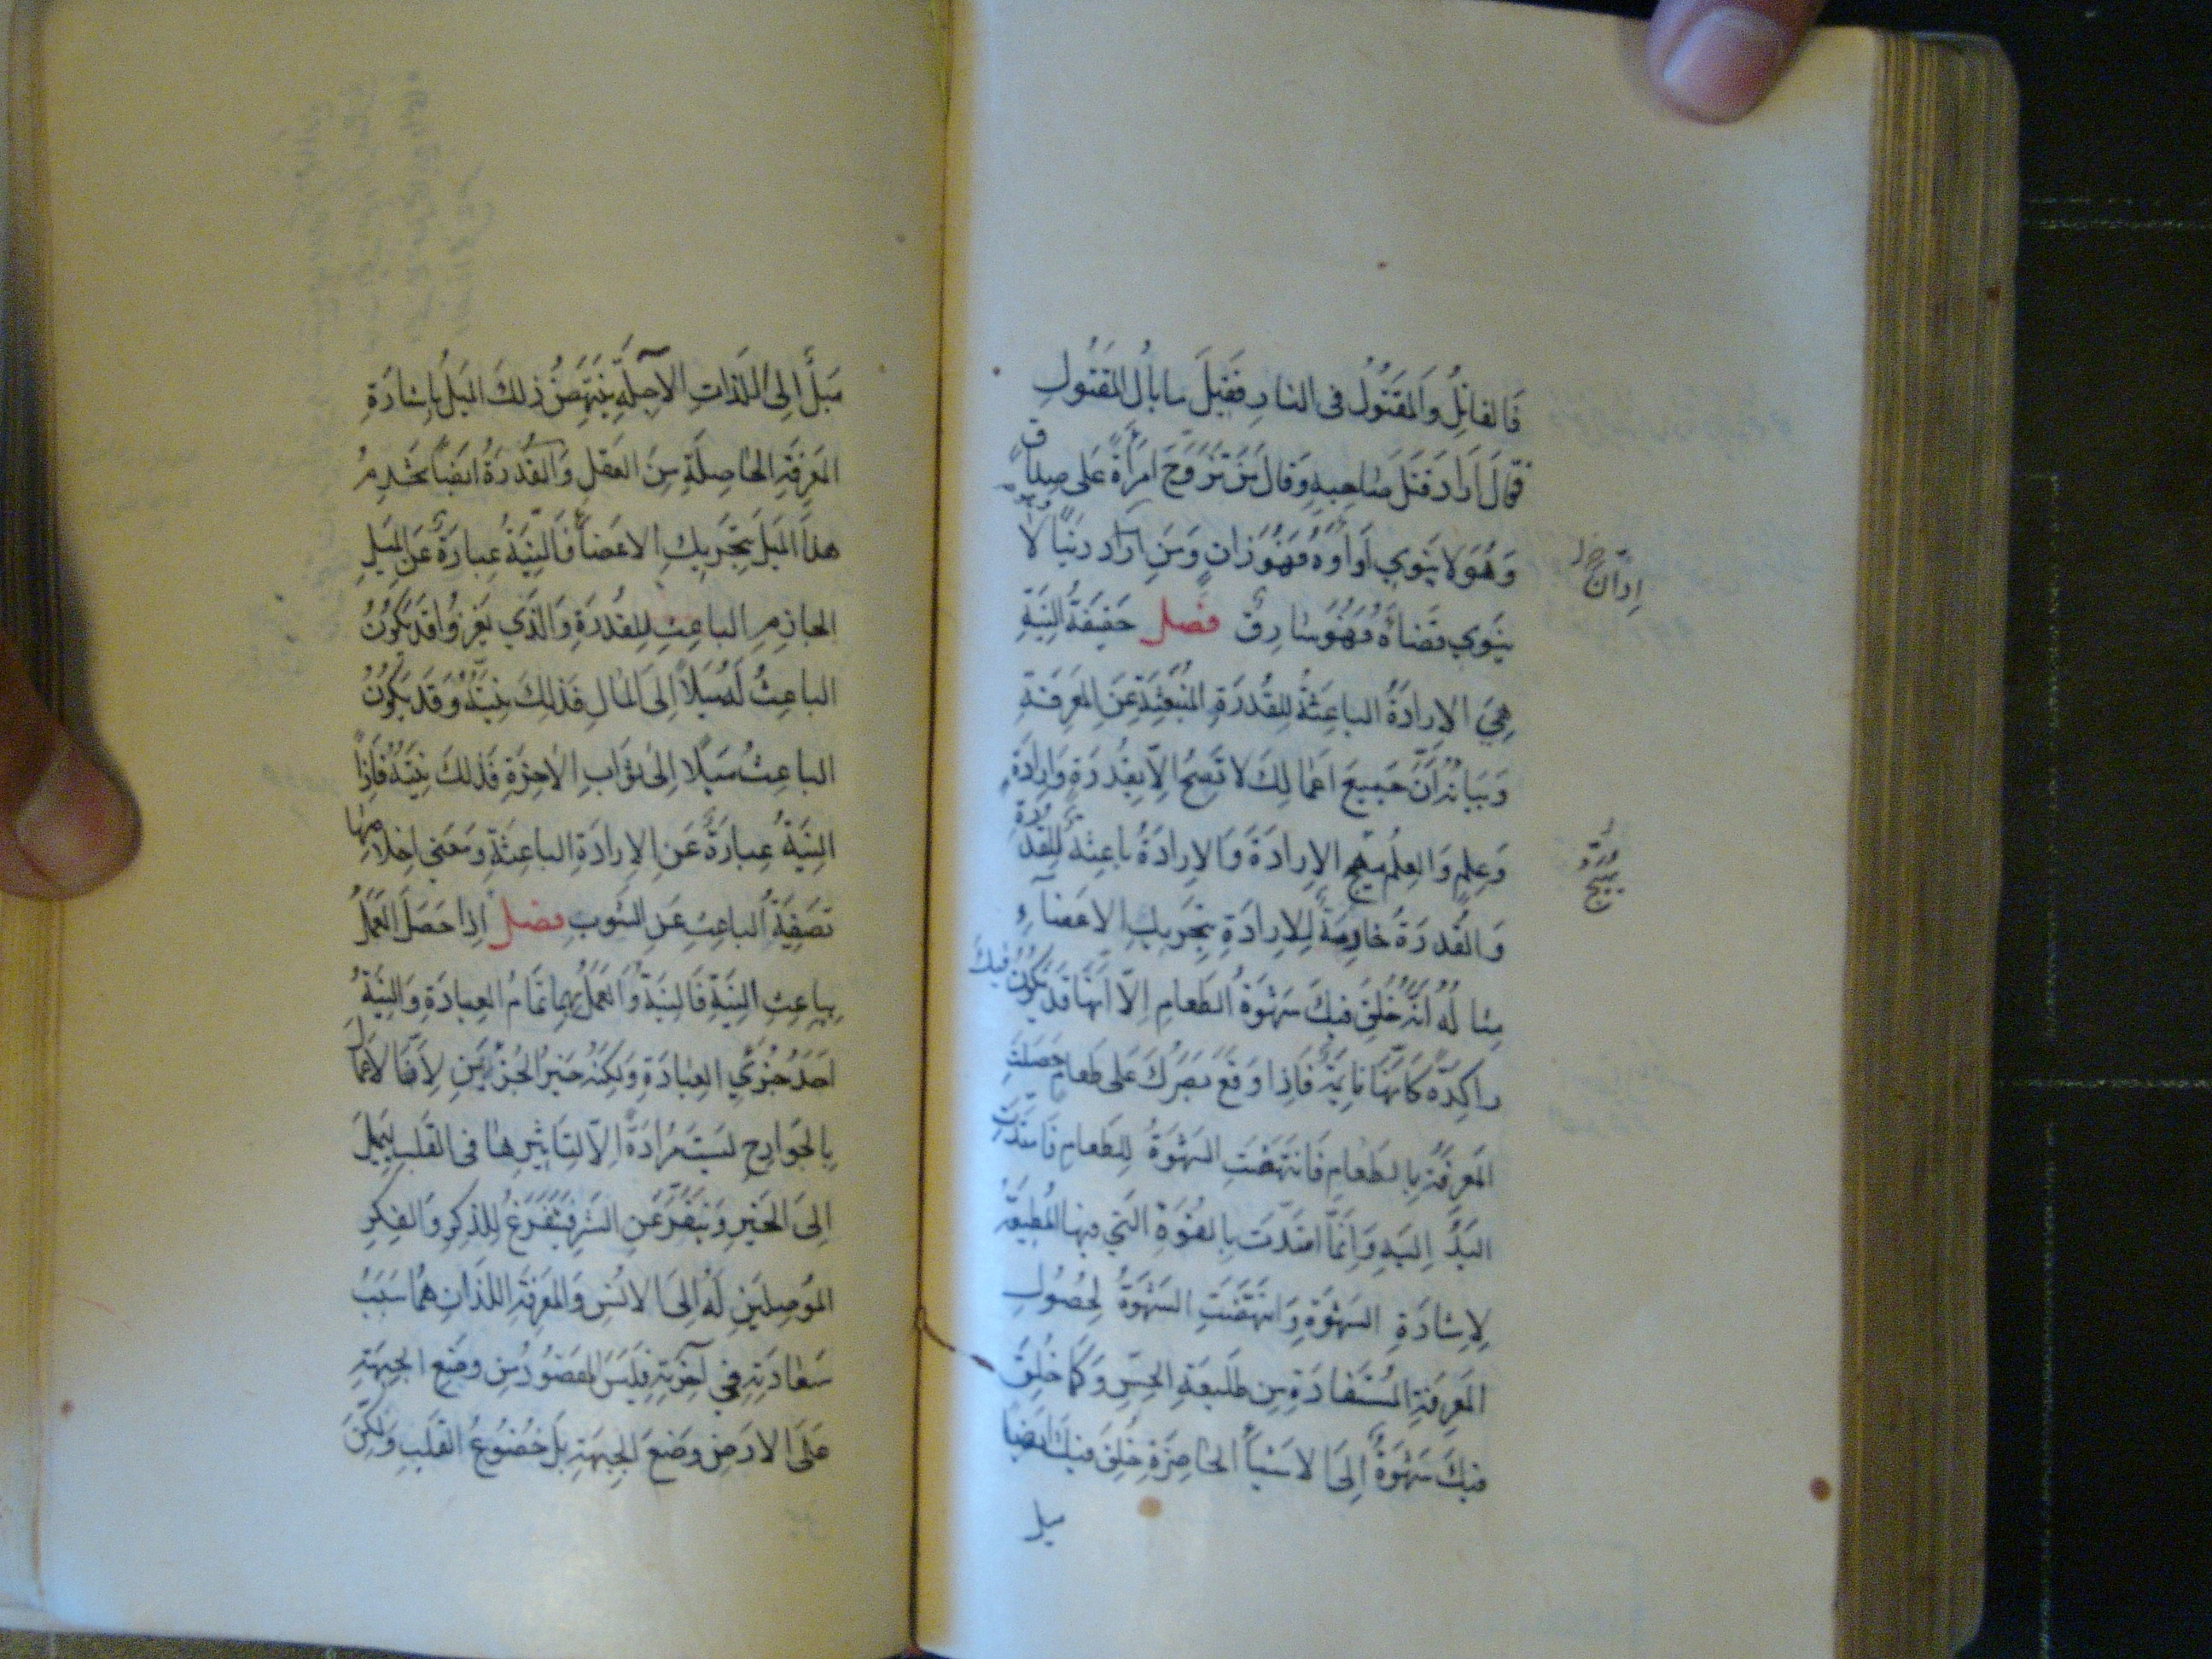 فَالقاتِلُ وَالمَقتُولُ فى النارِ فَقيلَ ما بالُ المَقتُولِ
فقالَ اَرادَ قتلَ صاحِبِهِ وَقالَ مَنْ تزَوَّجَ امرَأَةً عَلى صِداقٍ
وَهُوَ لا يَنوي اَداءَهُ فهُوَ زانٍ وَمَنِ ادّان دَينًا لا
يَنوي قضاءَهُ فهُوَ سارِقٌ فصل حَقيقةُ النِيّةِ
هِيَ الاِرادَةُ الباعِثةُ لِلقُدرَةِ المُنبَعِثةِ عَنِ المَعرِفةِ
وَبَيانُهُ اَنَّ جَميعَ اَعمالِكَ لا تَصِحُّ اِلاّ بِقُدرَةٍ وَاِرادَةٍ
وَعِلمٍ وَالعِلمُ يُهيّج الاِرادَةَ وَالاِرادَةُ باعِثةٌ لِلقُدرَةِ
وَالقُدرَةُ خادِمَةٌ لِلاِرادَةِ بِتَحريكِ الاعضآءِ
مِثالُهُ اَنَّهُ خُلِقَ فيكَ شَهوَةُ الطَعامِ اِلاّ اَنّها قَد تَكُونُ فيكَ
راكِدَةً كاَنّها نائِمَةٌ فَاِذا وَقَعَ بَصَرُكَ عَلى طَعامٍ حَصَلَتِ
المَعرِفَةُ بِالطَعامِ فَانتَهَضَتِ الشَهوَةُ لِلطَعامِ فَامتَدَّتِ
اليَدُ اِلَيهِ وَاِنَّما امتَدَّت بِالقُوَةِ التي فيها المُطيعَةِ
لِاِشارَةِ الشَهوَةِ وَانتَهَضَتِ الشَهوَةُ لِحُصُولِ
المَعرِفَةِ المُستَفادَةِ مِن طَليعَةِ الحِسِّ وَكَما خُلِقَ
فيكَ شَهوَةٌ اِلىَ الاَشياءِ الحاضِرَةِ خُلِقَ فيكَ ايضًا
ميل
ادّان
يُهيّج
مَيلٌ اِلى اللَذاتِ الآجِلَةِ يَنتَهِضُ ذلِكَ المَيلُ بِاِشارَةِ
المَعرِفَةِ الحاصِلَةِ مِنَ العَقلِ وَالقُدرَةُ ايضًا تَخدِمُ
هذا المَيلَ بِتَحريكِ الاعضاءِ فَالنِيَّةُ عِبارَةٌ عَنِ المَيلِ
الجازِمِ الباعِثِ لِلقُدرَةِ وَالذَي يَغزُوا قَد يَكُونُ
الباعِثُ لَهُ مَيلاً اِلىَ المالِ فَذلِكَ نِيَّتُهُ وَقَد يَكُونُ
الباعِثُ مَيلًا اِلىٰ ثوابِ الآخِرَةِ فَذلِكَ نِيَّتُهُ فَاِذًا
النِيَّةُ عِبارَةٌ عَنِ الاِرادَةِ الباعِثةِ وَمَعنى اِخلاصِها
تصفِيَةُ الباعِثِ عَنِ الشَوبِ فصل اِذا حَصَلَ العَمَلُ
بِباعِثِ النِيَّةِ فَالنِيَّةُ وَالعَمَلُ بِهِما تَمامُ العِبادَةِ وَالنِيَّةُ
اَحَدُ جُزئَيِ العِبادَةِ وَلكِنّهُ خَيرُ الجُزئَينِ لِاَنَّ الاَعمالَ
بِالجَوارِحِ لَيسَت مُرادَةً اِلاّ لِتَأثيرِها فى القَلبِ لِيَميلَ
اِلىَ الخَيرِ وَيَنفِرَ عَنِ الشَرِّ فيَتَفَرَّغُ لِلذِكرِ وَالفِكرِ
المُوصِلَينِ لَهُ اِلىَ الاُنسِ وَالمَعرِفَةِ اللذَانِ هُما سَبَبُ
سَعادَتِهِ في آخِرَتِهِ فَلَيسَ المَقصُودُ مِن وضعِ الجبهَةِ
عَلَى الارضِ وضعَ الجبهَةِ بَل خُضُوعُ القَلبِ وَلكِنَّ